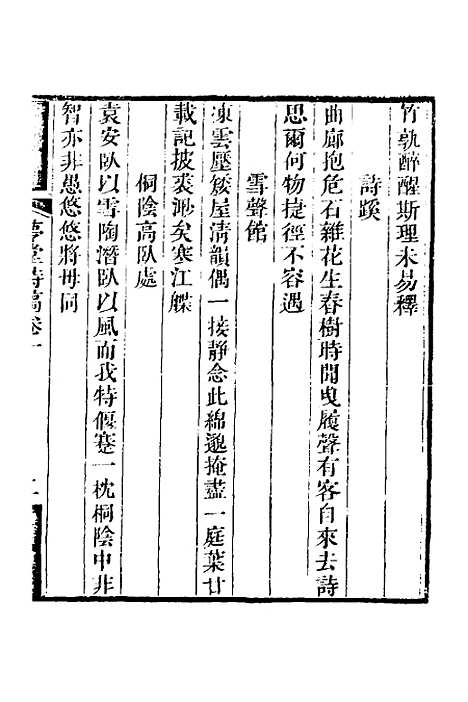 竹孰醉醒斯理未易釋
詩蹊
曲廊抱危石雜花生春樹時聞曳履聲有客自來去詩
思爾何物捷徑不容遇
雪聲館
凍雲壓矮屋清韻偶一接靜念此綿邈掩盡一庭葉廿
載記披裘渺矣寒江艓
桐陰高臥處
袁安臥以雪陶潛臥以風而我特偃蹇一枕桐陰中非
智亦非愚悠悠將毋同
堂詩稿卷一